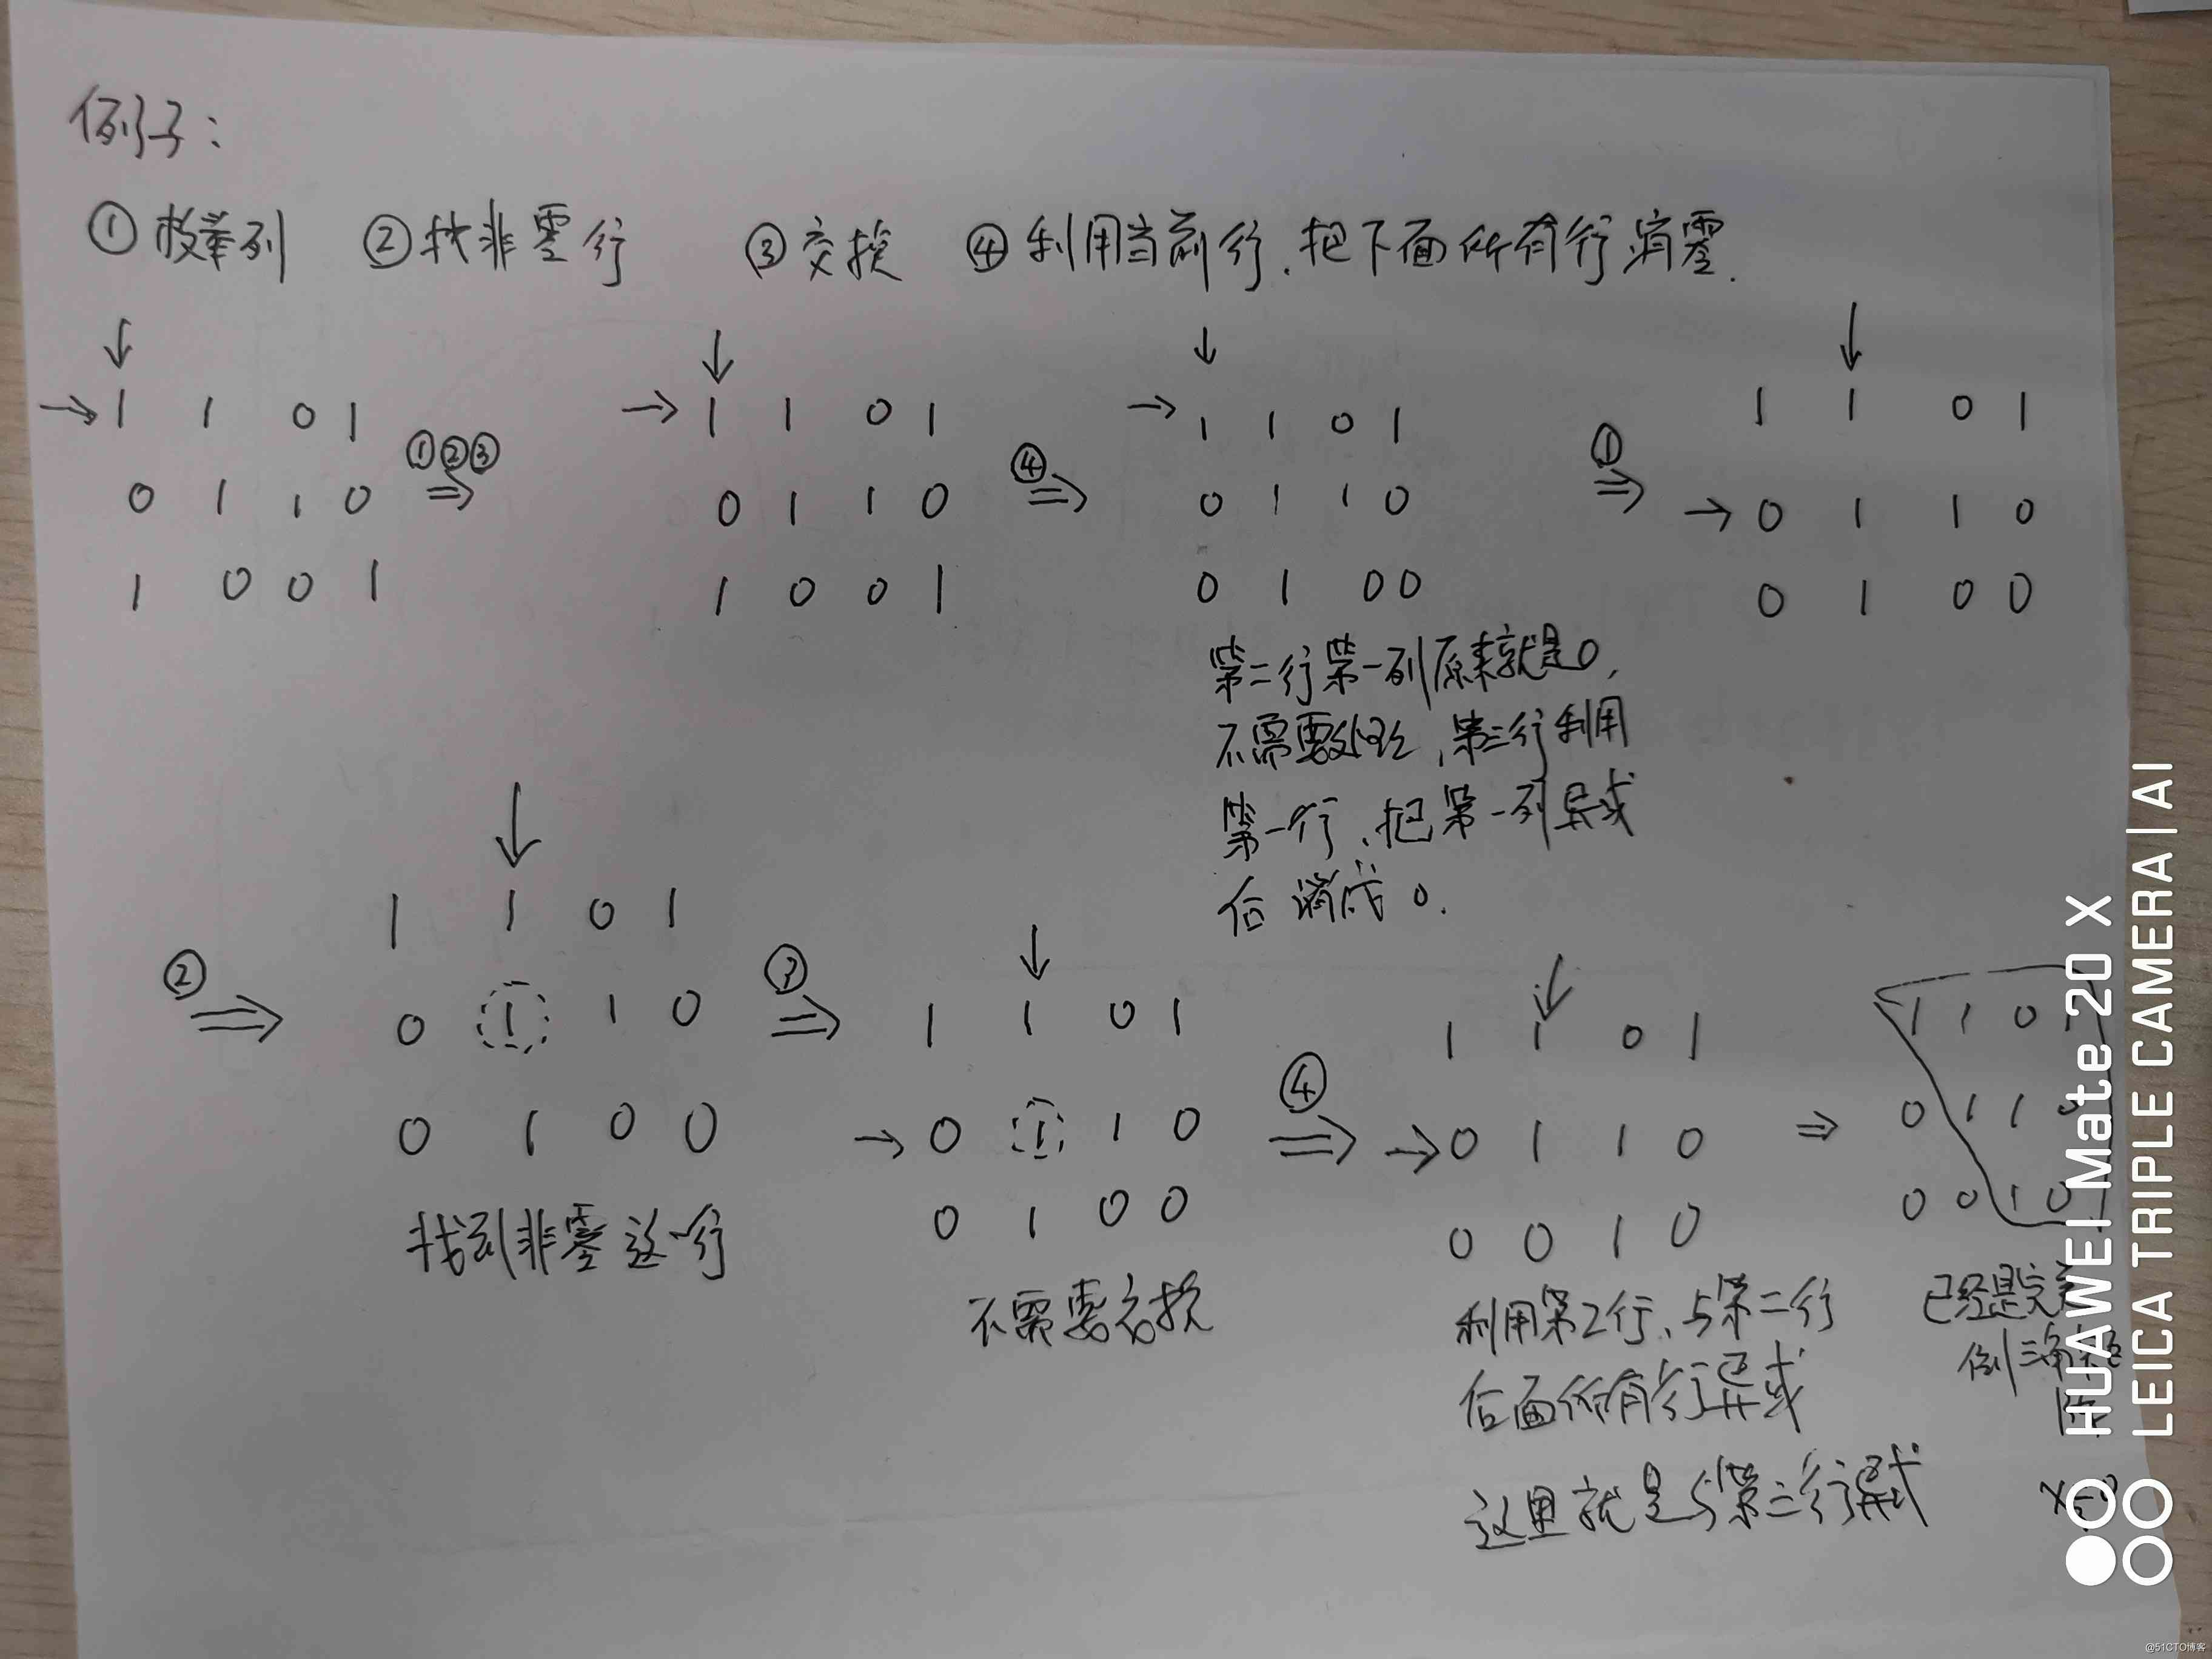 例子：
①枚举列 ②找非零行 ③交换 ④利用当前行，把下面所有行消零.
↓ ↓ ↓ ↓
→ 1 1 0 1 → 1 1 0 1 → 1 1 0 1 1 1 0 1
①②③ ④ ①
0 1 1 0 ⇒ 0 1 1 0 ⇒ 0 1 1 0 ⇒ → 0 1 1 0
1 0 0 1 1 0 0 1 0 1 0 0 0 1 0 0
第二行第一列原来就是0，
不需要处理，第三行利用
第一行，把第一列异或
后消成0.
↓
1 1 0 1
② ⇒ 0 1 1 0
0 1 0 0
找到非零这一行
③ ⇒
↓
1 1 0 1
→ 0 1 1 0
0 1 0 0
不需要交换
④ ⇒
↓
1 1 0 1
→ 0 1 1 0
0 0 1 0
利用第2行，与第二行
后面所有行异或
这里就是与第三行异或
⇒
1 1 0
0 1 1
0 0 1 0
已经是完美
倒三角
HUAWEI Mate 20 X
LEICA TRIPLE CAMERA | AI
@51CTO博客